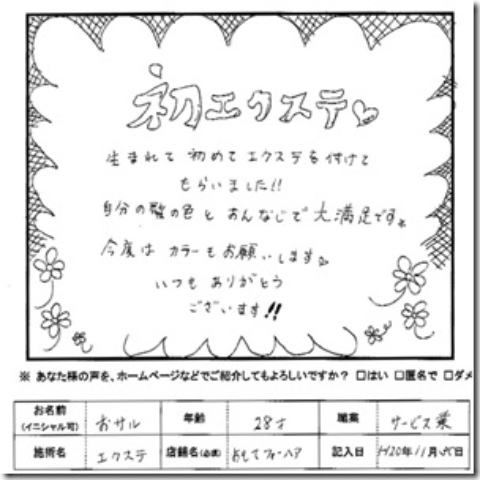 初エクステ♡
生まれて 初めて エクステを付けて
もらいました!!
自分の髪の色と おんなじで 大満足です。
今度は カラーもお願いします。
いつも ありがとう
ございます!!
※ あなた様の声を、ホームページなどでご紹介してもよろしいですか? □はい □匿名で □ダメ
お名前(イニシャル可) おサル 年齢 28才 職業 サービス業
施術名 エクステ 店舗名(必須) おしてフォーヘア 記入日 H20年11月25日